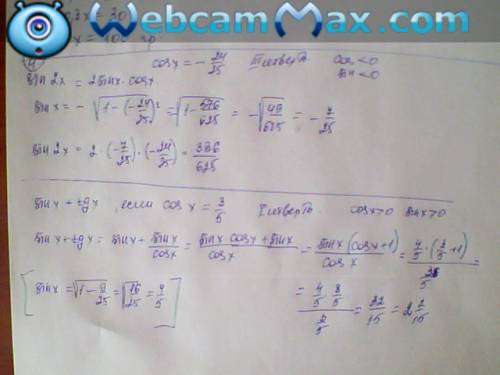 WebcamMax.com
4) cos x = - 24/25 III четверть cos < 0
sin < 0
sin 2x = 2 sin x · cos x
sin x = - √(1 - (-24/25)²) = √(1 - 576/625) = - √(49/625) = - 7/25
sin 2x = 2 · (-7/25) · (-24/25) = 336/625
sin x + tg x , если cos x = 3/5 I четверть cos x > 0 sin x > 0
sin x + tg x = sin x + sin x/cos x = (sin x cos x + sin x)/cos x = sin x (cos x + 1)/cos x = 4/5 · (3/5 + 1)/(3/5) =
[ sin x = √(1 - 9/25) = √(16/25) = 4/5 ]
= (4/5 · 8/5)/(3/5) = 32/15 = 2 2/15